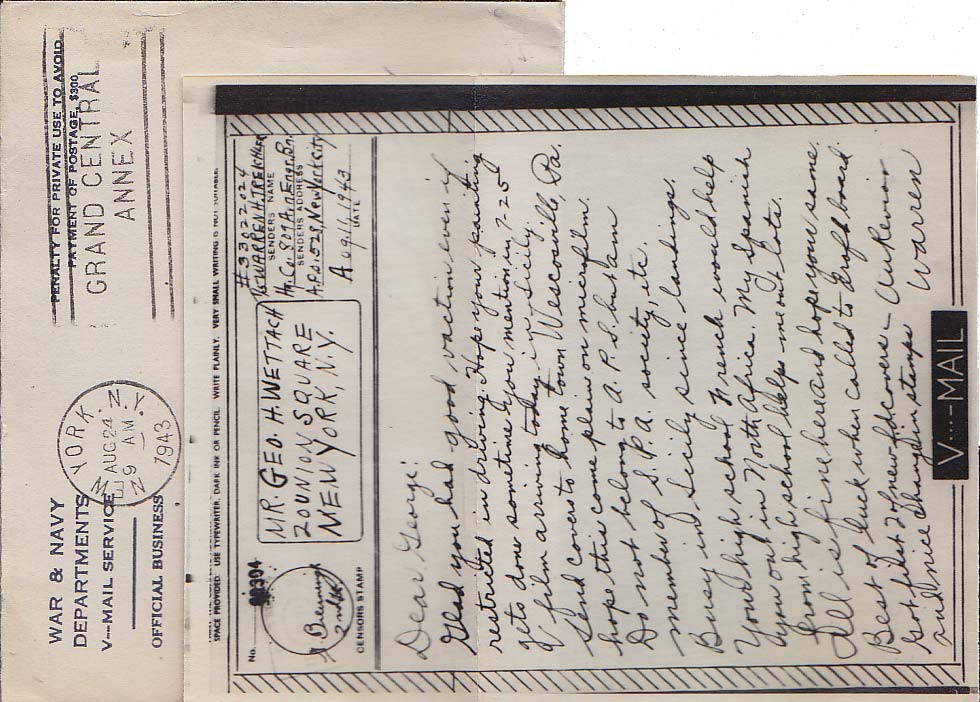 WAR & NAVY
DEPARTMENTS
V--MAIL SERVICE
OFFICIAL BUSINESS
YORK, N.Y.
AUG 24
9 AM
1943
PENALTY FOR PRIVATE USE TO AVOID
PAYMENT OF POSTAGE, $300
GRAND CENTRAL
ANNEX
SPACE PROVIDED. USE TYPEWRITER, DARK INK OR PENCIL. WRITE PLAINLY. VERY SMALL WRITING IS NOT SUITABLE.
No.
CENSORS STAMP
MR. GEO. H. WETTACH
20 UNION SQUARE
NEW YORK, N.Y.
#33822024
SENDERS NAME
Hq. Co. 809 Avn. Engr. Bn.
SENDERS ADDRESS
A.P.O. 528, New York City
Aug. 11, 1943
DATE
Dear George:
Glad you had good vaction even if
restricted in driving. Hope your painting
gets done sometime you mention in 7-25
V film arriving today in Sicily.
Send covers to home town Wescoville, Pa.
hope this come plain on microfilm.
Do not belong to A.P.S. but am
member of S.P.A. society, etc.
Busy in Sicily since landings.
Your high school French would help
you out in North Africa. My Spanish
from high school helps me out lots.
All is fine here and hope yours same.
Best of luck when called to draft board.
Got first 2 of new fdcovers — Au Revoir
and nice changling stamps Warren
V···—MAIL